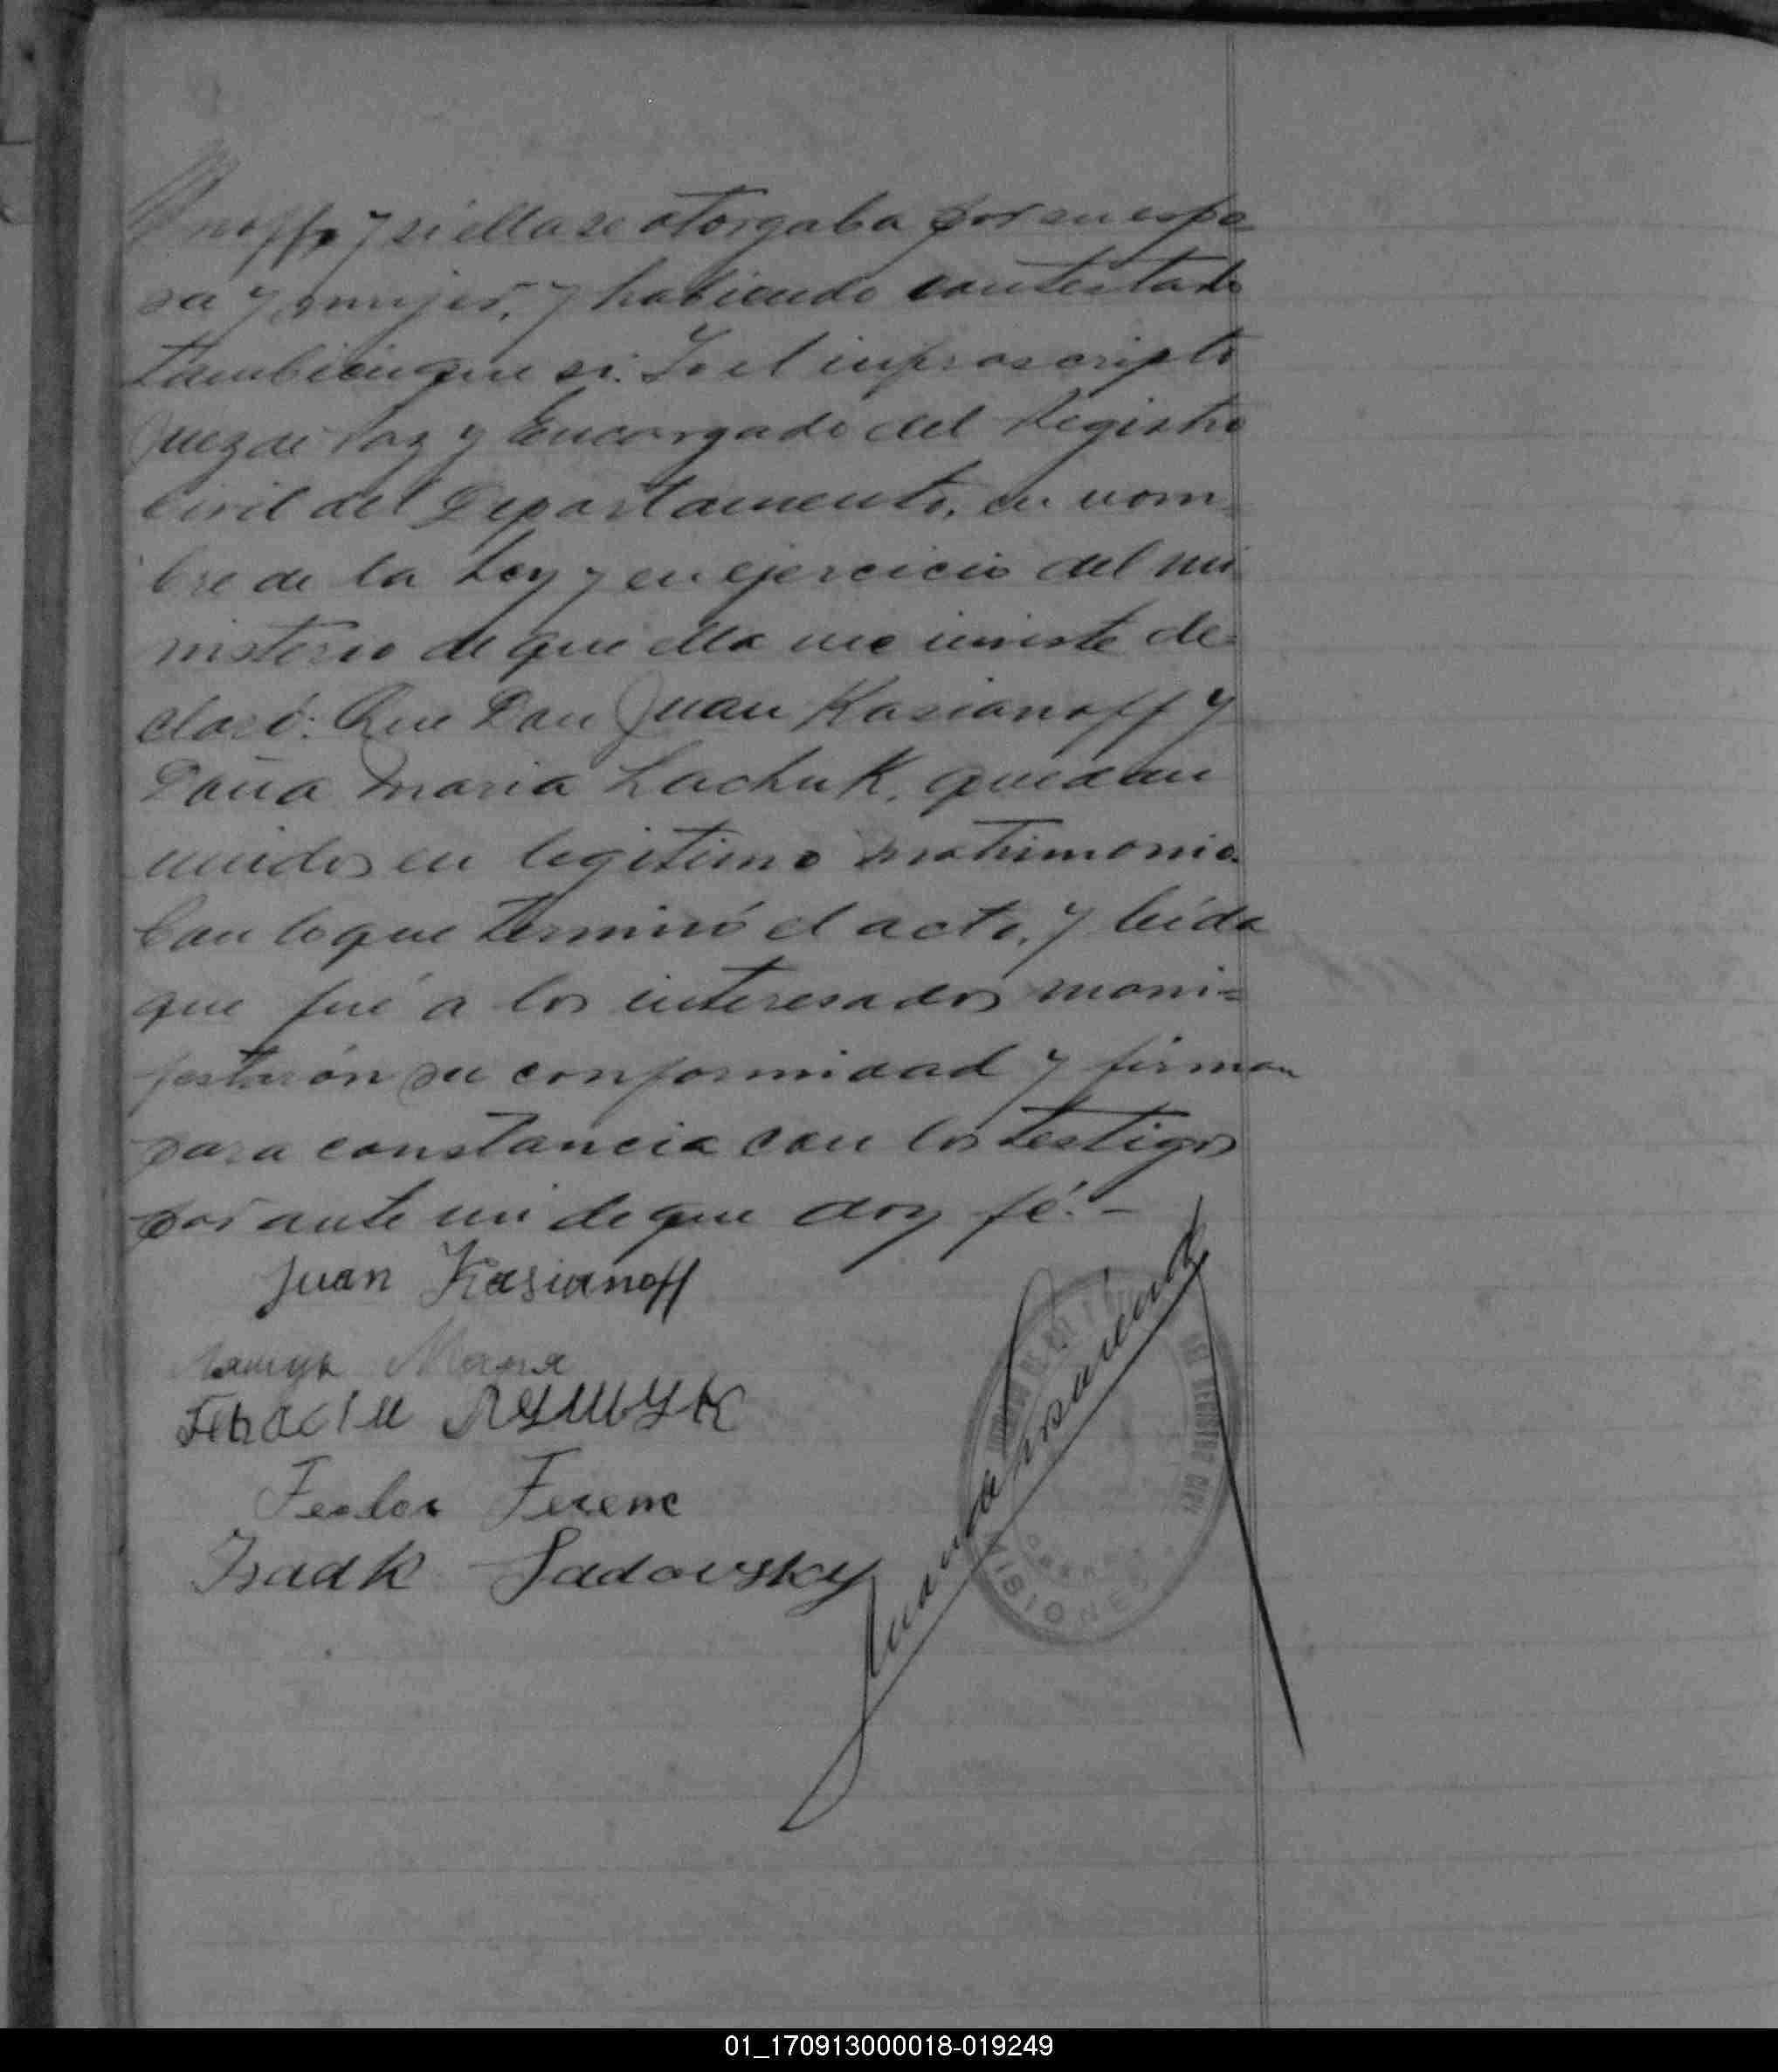 noff, y si ella se otorgaba por su espo
sa y mujer, y habiendo contestado
tambien que si. Yo el infrascripto
Juez de Paz y Encargado del Registro
Civil del Departamento, en nom-
bre de la Ley y en ejercicio del mi
nisterio de que ella me inviste de-
claró: Que Don Juan Kasianoff y
Doña Maria Lachuk, quedan
unidos en legitimo matrimonio.
Con lo que terminó el acto, y leída
que fué a los interesados mani=
festarón su conformidad y firman
para constancia con los testigos
por ante mi de que doy fé.-
Juan Kasianoff
Лящук Маря
ЛЯШЬУК
Feodor Ferenc
Isadk Sadovsky
DEL REGISTRO CIVIL
MISIONES
01_170913000018-019249